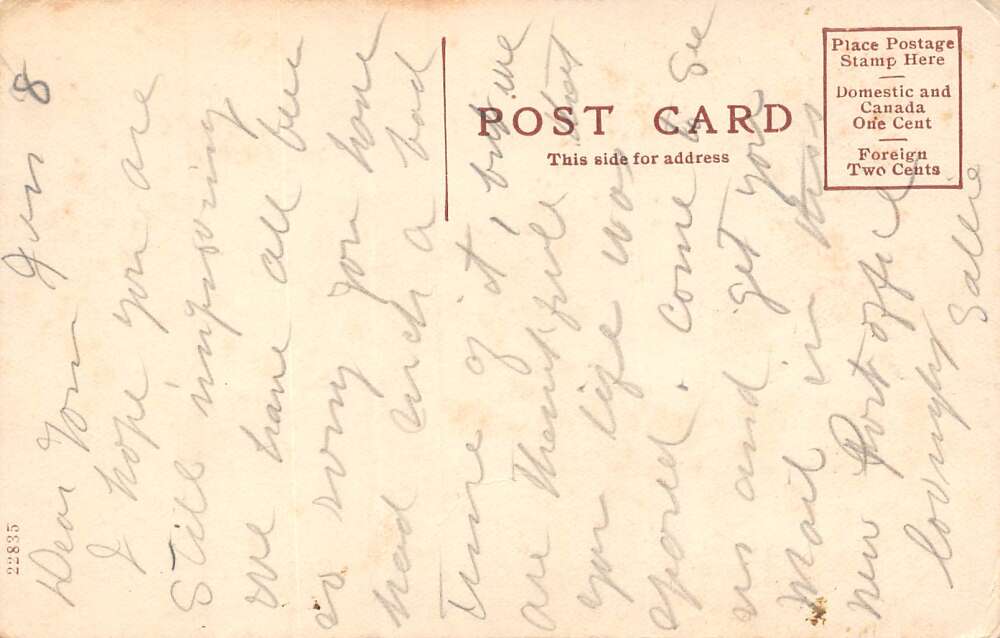 POST CARD
This side for address
Place Postage
Stamp Here
Domestic and
Canada
One Cent
Foreign
Two Cents
22835
8
Dear Tom
I hope you are
Still improving
we have all been
so sorry you have
had such a bad
time of it, but we
are thankfull that
your life was
spared. Come to see
us and get your
mail in this
new Post office
lovingly
Sallie